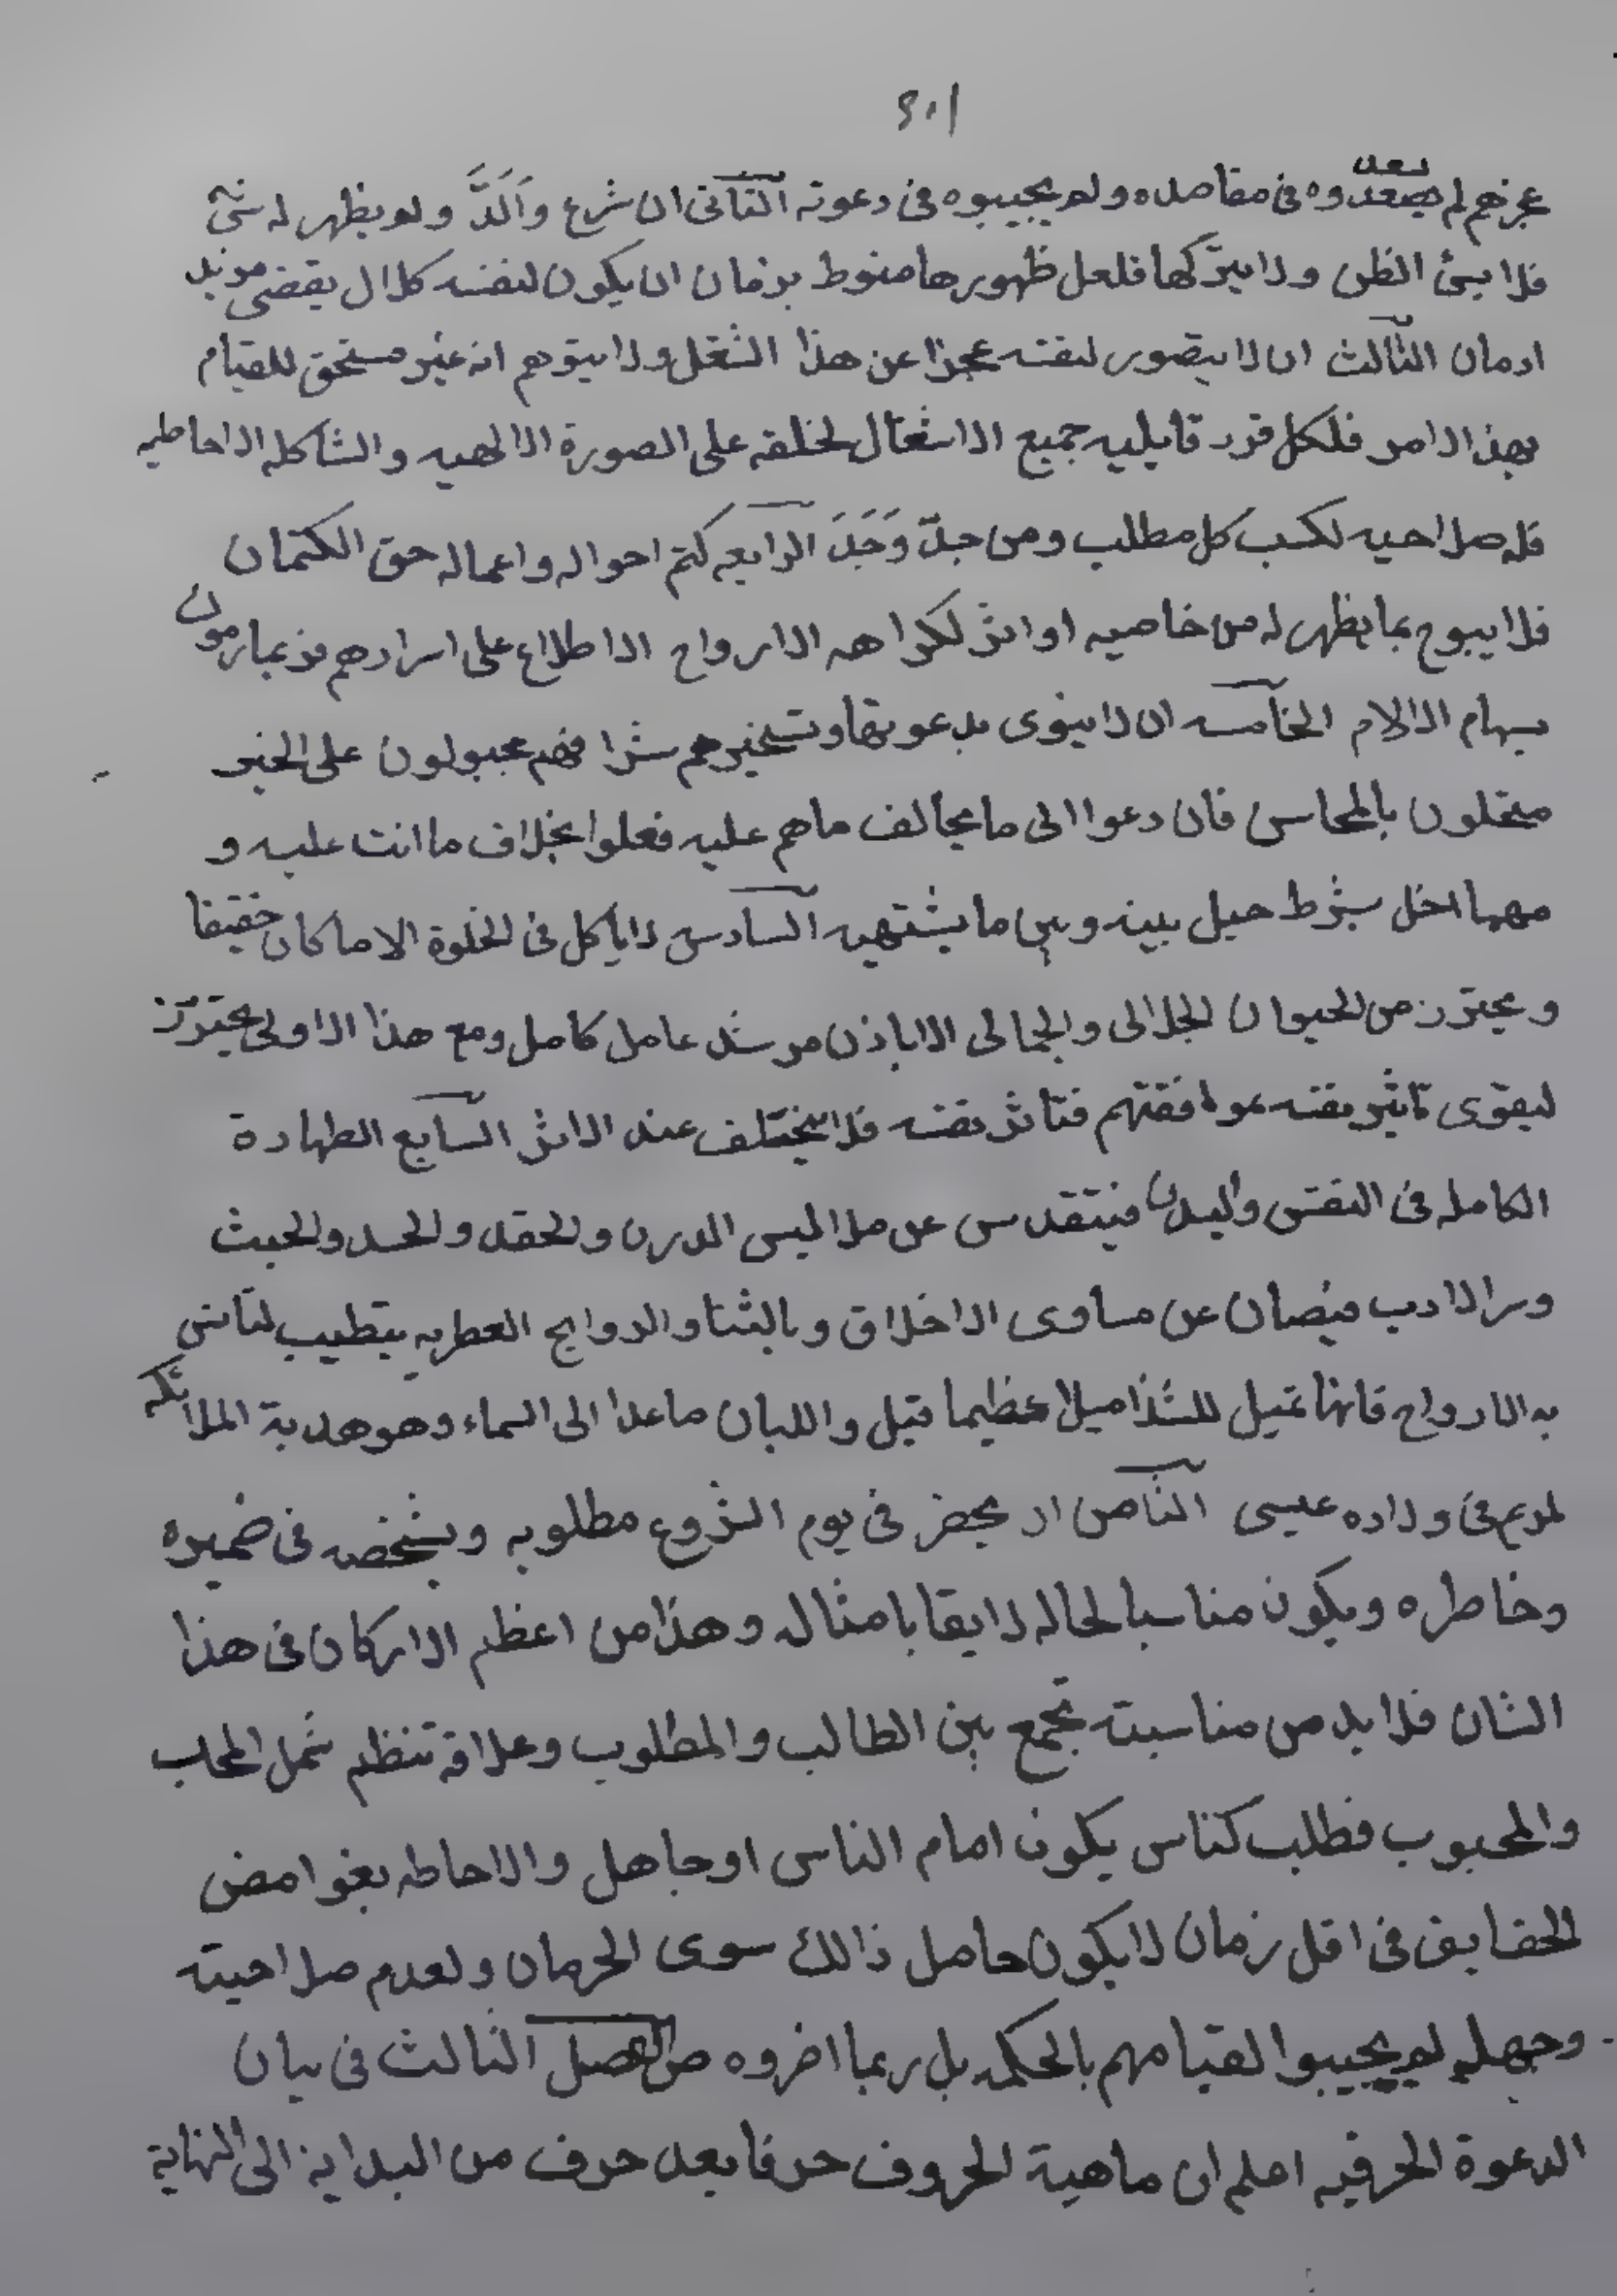 عزهم لم يصعدوه في مقاصده ولم يجيبوه في دعوته الثاني ان شرع وَاَلَدَّ ولم يظهر له شئ
فلا يسئ الظن ولا يتركها فلعل ظهورها منوط بزمان ان يكون لنفسه كلال يقضى مزيد
ادمان الثالث ان لا يتصور لنفسه عجزا عن هذا الشغل ولا يتوهم انه غير مستحق للقيام
بهذا الامر فلكل فرد قابليه جميع الاشغال لخلقه على الصورة الالهيه والشاكله الاحاطيه
فله صلاحيه لكسب كل مطلب ومن جدّ وَجَدَ الرابعه كتم احواله واعماله حق الكتمان
فلا يبوح بما يظهر له من خاصيه او اثر لكراهه الارواح الاطلاع على اسرارهم فربما رمون
بسهام الالام الخامسه ان لا ينوى بدعوتها وتسخيرهم شرا فهم مجبولون على الخير
متحلون بالمحاسن فان دعوا الى ما يخالف ماهم عليه فعلوا بخلاف ما انت عليه و
مهما اخل بشرط حيل بينه وبين ما يشتهيه السادس لا ياكل في الخلوة الا ما كان خفيفا
ويحترز من الحيوان الجلالى والجمالى الا باذن مرشد عامل كامل ومع هذا الاولى يحترز
ليقوى تاثير نفسه بموافقتهم فتاثر نفسه فلا يختلف عنه الاثر السابع الطهارة
الكامله في النفس والبدن فيتقدس عن ملابس الدرن والحقد والحسد والخبث
وبر الادب فيصان عن مساوى الاخلاق وبالثنا والروايح العطريه يتطيب لتانس
به الارواح فانها تميل للشذا ميلا عظيما قيل واللبان ما عدا الى السماء وهو هدية الملائكه
لمريم في ولاده عيسى الثامن ان يحضر في يوم الشروع مطلوبه ويشخصه في ضميره
وخاطره ويكون مناسبا لحاله لايقا بامثاله وهذا من اعظم الاركان في هذا
الشان فلا بد من مناسبته تجمع بين الطالب والمطلوب وعلاقة تنظم شمل المحب
والمحبوب فطلب كناس يكون امام الناس او جاهل والاحاطه بغوامض
الحقايق في اقل زمان لا يكون حاصل ذالك سوى الحرمان ولعدم صلاحيته
وجهله لم يجيبوا لقيامهم بالحكمه بل ربما اضروه الفصل الثالث في بيان
الدعوة الحرفيه اعلم ان ماهية الحروف حرفا بعد حرف من البداية الى النهاية